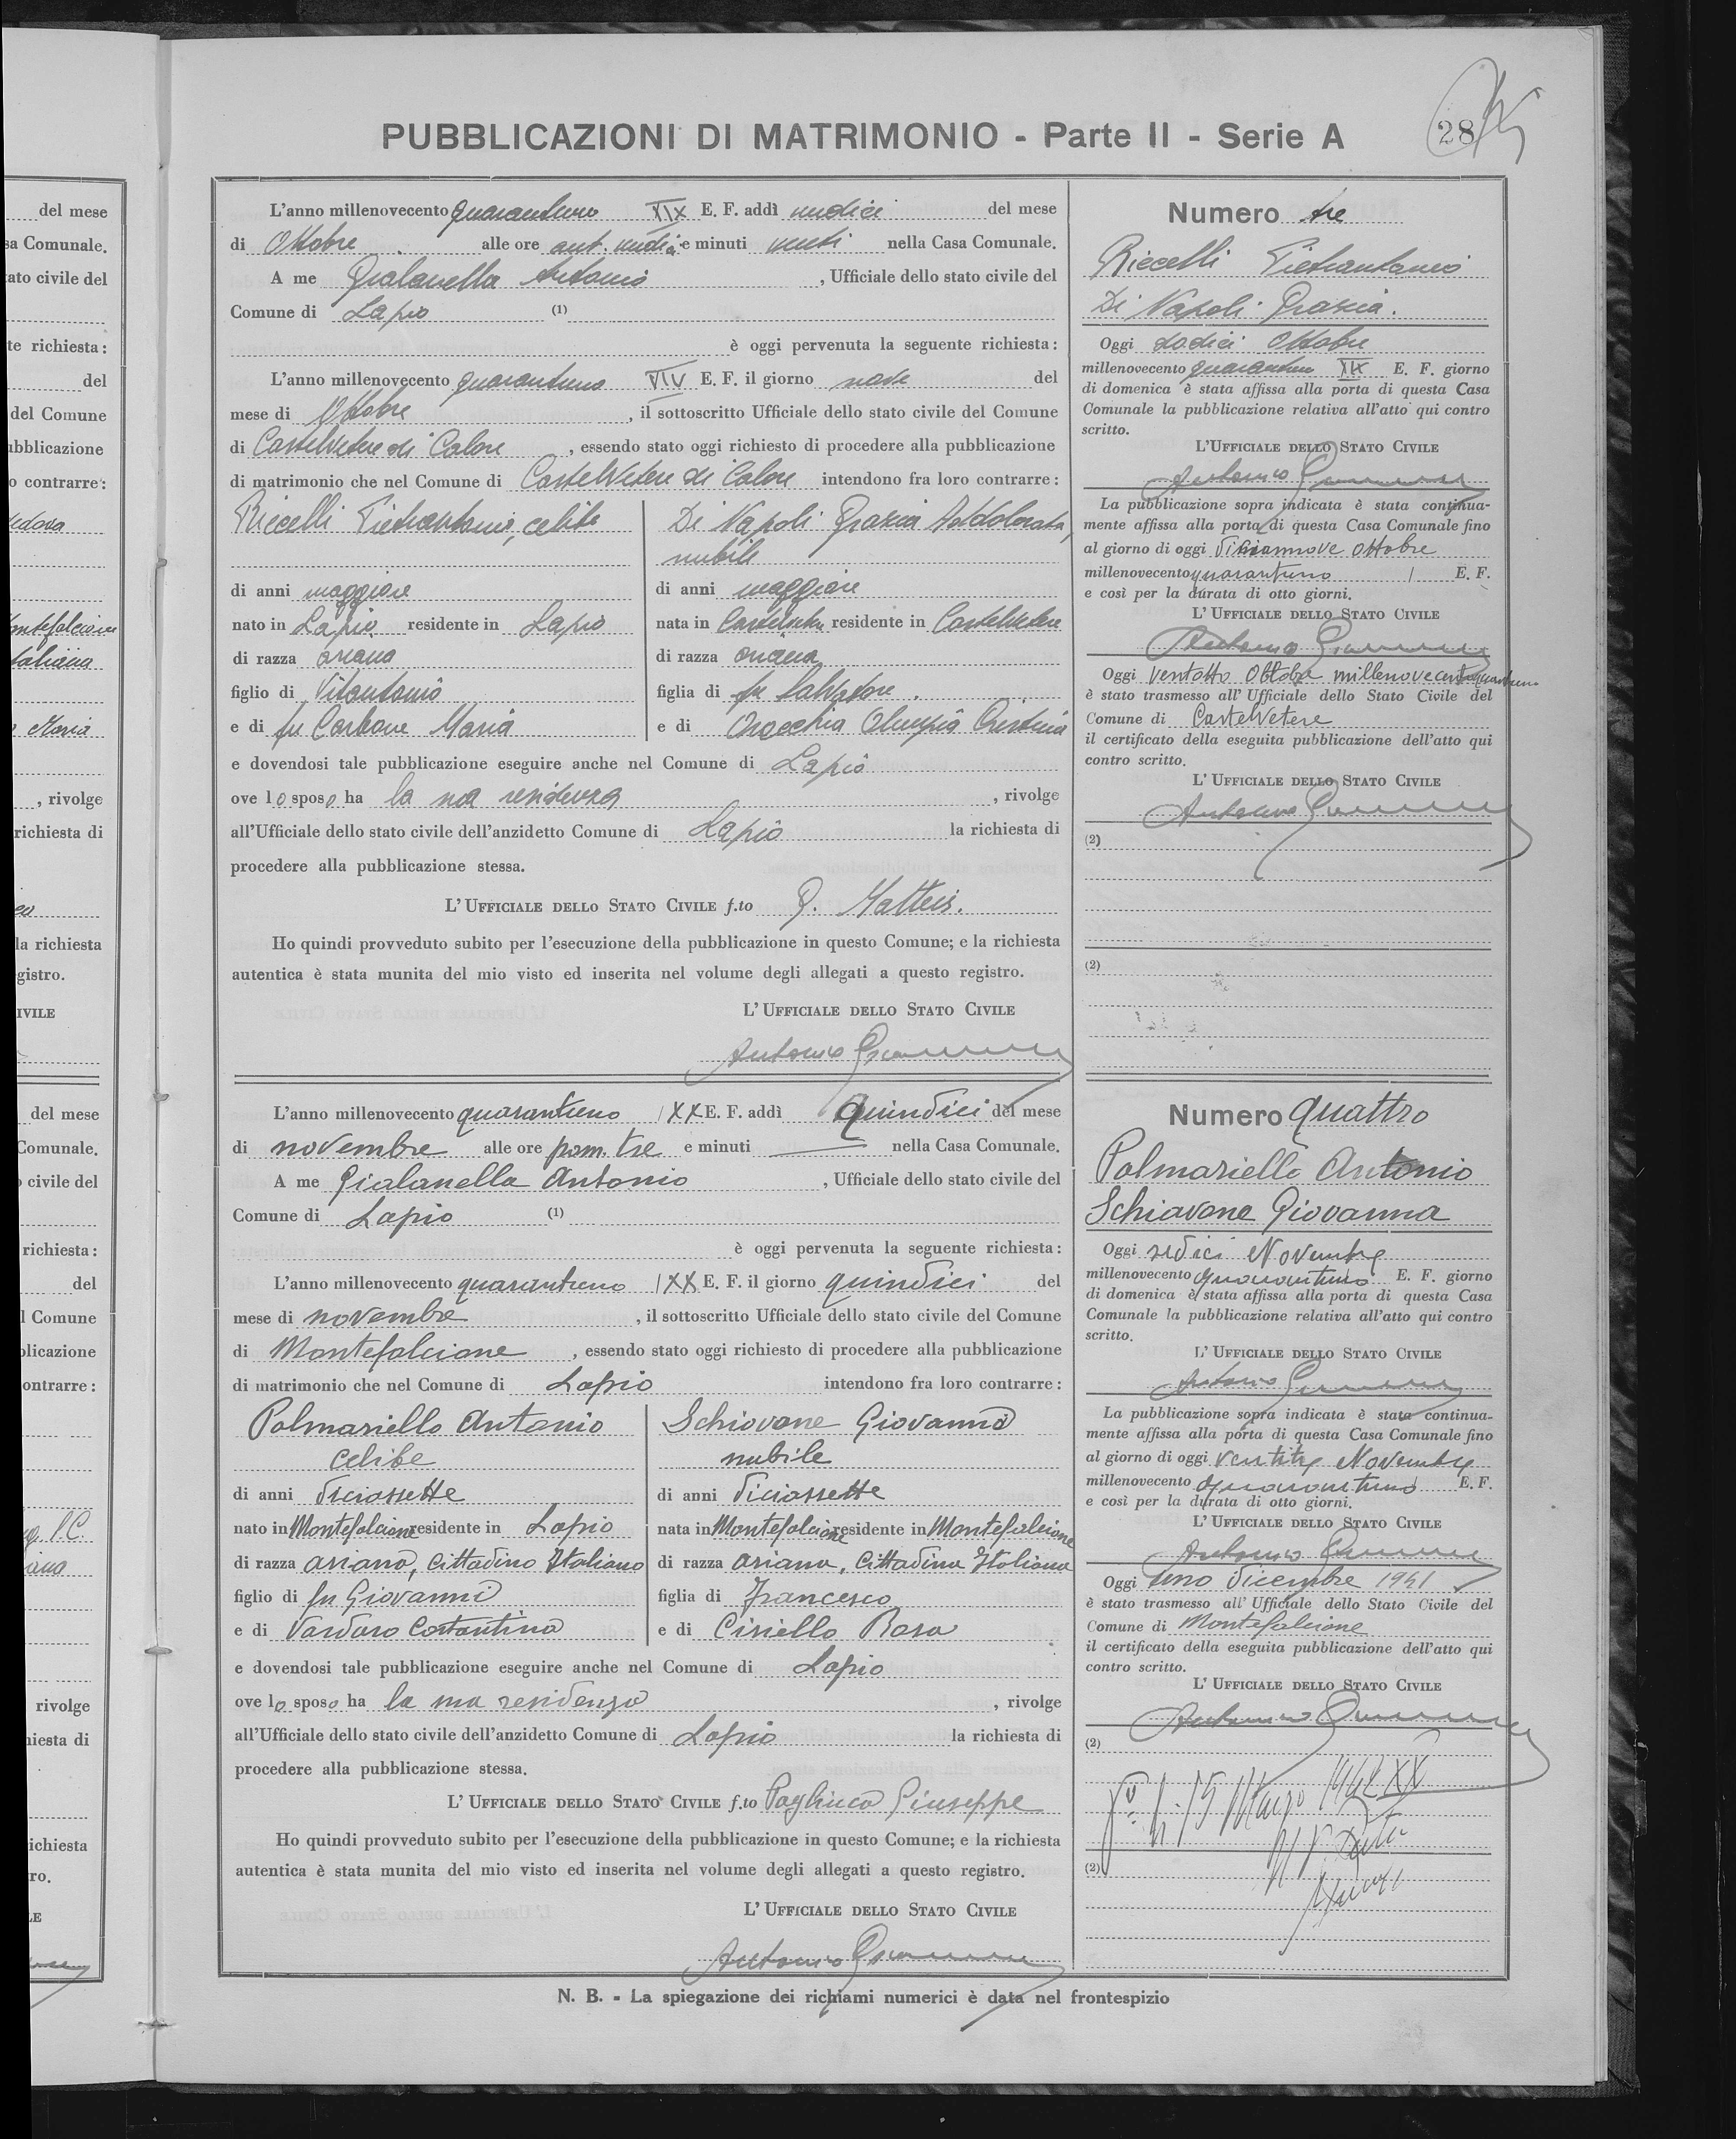 PUBBLICAZIONI DI MATRIMONIO - Parte II - Serie A
28
L'anno millenovecento quarantuno XIX E. F. addì undici del mese
di Ottobre alle ore ant. undici e minuti venti nella Casa Comunale.
A me Gialanella Antonio, Ufficiale dello stato civile del
Comune di Lapio (1)
è oggi pervenuta la seguente richiesta:
L'anno millenovecento quarantuno E. F. il giorno nove del
mese di Ottobre, il sottoscritto Ufficiale dello stato civile del Comune
di Castelvetere di Calore, essendo stato oggi richiesto di procedere alla pubblicazione
di matrimonio che nel Comune di Castelvetere di Calore intendono fra loro contrarre:
Riccelli Pietrantonio, celibe
di anni maggiore
nato in Lapio residente in Lapio
di razza ariana
figlio di Vitantonio
e di fu Carbone Maria
Di Napoli Grazia Addolorata,
nubile
di anni maggiore
nata in residente in Castelvetere
di razza ariana
figlia di fu Salvatore.
e di Olimpia Cristina
e dovendosi tale pubblicazione eseguire anche nel Comune di Lapio
ove lo sposo ha la sua residenza, rivolge
all'Ufficiale dello stato civile dell'anzidetto Comune di Lapio la richiesta di
procedere alla pubblicazione stessa.
L'UFFICIALE DELLO STATO CIVILE f.to
Ho quindi provveduto subito per l'esecuzione della pubblicazione in questo Comune; e la richiesta
autentica è stata munita del mio visto ed inserita nel volume degli allegati a questo registro.
L'UFFICIALE DELLO STATO CIVILE
Antonio
Numero tre
Riccelli Pietrantonio
Di Napoli Grazia.
Oggi dodici Ottobre
millenovecento quarantuno XIX E. F. giorno
di domenica è stata affissa alla porta di questa Casa
Comunale la pubblicazione relativa all'atto qui contro
scritto.
L'UFFICIALE DELLO STATO CIVILE
Antonio
La pubblicazione sopra indicata è stata continua-
mente affissa alla porta di questa Casa Comunale fino
al giorno di oggi diciannove Ottobre
millenovecento quarantuno E. F.
e così per la durata di otto giorni.
L'UFFICIALE DELLO STATO CIVILE
Antonio
Oggi ventotto Ottobre millenovecentoquarantuno
è stato trasmesso all'Ufficiale dello Stato Civile del
Comune di Castelvetere
il certificato della eseguita pubblicazione dell'atto qui
contro scritto.
L'UFFICIALE DELLO STATO CIVILE
Antonio
(2)
(2)
L'anno millenovecento quarantuno XX E. F. addì quindici del mese
di novembre alle ore pom. tre e minuti — nella Casa Comunale.
A me Gialanella Antonio, Ufficiale dello stato civile del
Comune di Lapio (1)
è oggi pervenuta la seguente richiesta:
L'anno millenovecento quarantuno XX E. F. il giorno quindici del
mese di novembre, il sottoscritto Ufficiale dello stato civile del Comune
di Montefalcione, essendo stato oggi richiesto di procedere alla pubblicazione
di matrimonio che nel Comune di Lapio intendono fra loro contrarre:
Palmariello Antonio
celibe
di anni diciassette
nato in Montefalcione residente in Lapio
di razza ariana, cittadino Italiano
figlio di fu Giovanni
e di Vardaro Costantina
Schiavone Giovanna
nubile
di anni diciassette
nata in Montefalcione residente in Montefalcione
di razza ariana, cittadina Italiana
figlia di Francesco
e di Ciriello Rosa
e dovendosi tale pubblicazione eseguire anche nel Comune di Lapio
ove lo sposo ha la sua residenza, rivolge
all'Ufficiale dello stato civile dell'anzidetto Comune di Lapio la richiesta di
procedere alla pubblicazione stessa.
L'UFFICIALE DELLO STATO CIVILE f.to Pagliuca Giuseppe
Ho quindi provveduto subito per l'esecuzione della pubblicazione in questo Comune; e la richiesta
autentica è stata munita del mio visto ed inserita nel volume degli allegati a questo registro.
L'UFFICIALE DELLO STATO CIVILE
Antonio
Numero quattro
Palmariello Antonio
Schiavone Giovanna
Oggi sedici Novembre
millenovecento quarantuno E. F. giorno
di domenica è stata affissa alla porta di questa Casa
Comunale la pubblicazione relativa all'atto qui contro
scritto.
L'UFFICIALE DELLO STATO CIVILE
Antonio
La pubblicazione sopra indicata è stata continua-
mente affissa alla porta di questa Casa Comunale fino
al giorno di oggi ventitre Novembre
millenovecento quarantuno E. F.
e così per la durata di otto giorni.
L'UFFICIALE DELLO STATO CIVILE
Antonio
Oggi uno dicembre 1941
è stato trasmesso all'Ufficiale dello Stato Civile del
Comune di Montefalcione
il certificato della eseguita pubblicazione dell'atto qui
contro scritto.
L'UFFICIALE DELLO STATO CIVILE
Antonio
(2)
15 Marzo 1942 XX
(2)
N. B. - La spiegazione dei richiami numerici è data nel frontespizio